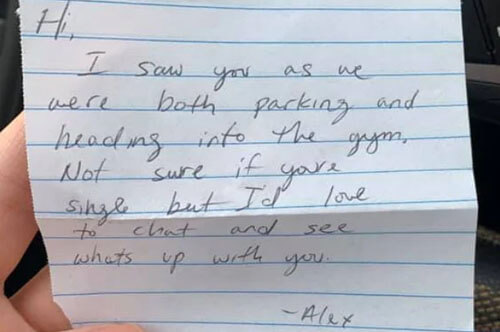 Hi,
I saw you as we
were both parking and
heading into the gym.
Not sure if you're
single but I'd love
to chat and see
whats up with you.
-Alex